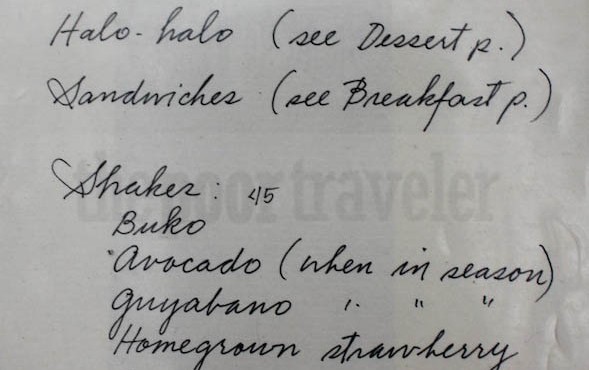 Halo-halo (see Dessert p.)
Sandwiches (see Breakfast p.)
Shakes: 45
thepoortraveler
Buko
Avocado (when in season)
Guyabano " " "
Homegrown strawberry